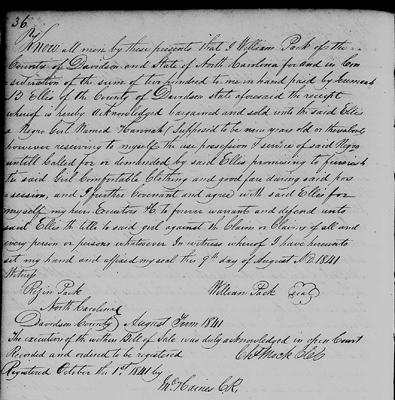 36
Know all men by these presents that I William Park of the
County of Davidson and State of North Carolina for and in Con
sideration of the sum of two hundred to me in hand paid by
B Elles of the County of Davidson state aforesaid the receipt
wherof is hereby Acknowledged bargained and sold unto the said Elles
a Negro Girl Named Hannah Supposed to be nine years old or thereabouts
however reserving to myself the use possession & service of said Negro
untill Called for or demanded by said Elles promising to furnish
the said Girl Comfortable Clothing and good fare during said pos
session, and I further Covenant and agree with said Elles for
myself my heirs Executors &c to forever warrant and defend unto
said Elles the title to said girl against the Claim or Claims of all and
every person or persons whatsoever In witness wherof I have hereunto
set my hand and affixed my seal this 9th day of August AD 1841
Witness
Park William Park Seal
North Carolina
Davidson County August Term 1841
The execution of the within Bill of Sale was duly acknowledged in open Court
Recorded and ordered to be registered Chs Mock Clk
Registered October the 1st 1841 by
Haines C.R.